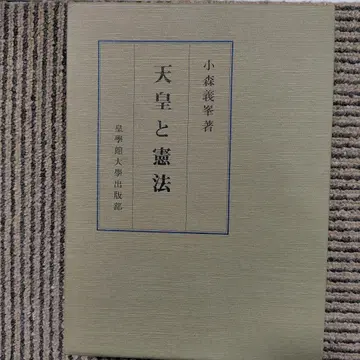 小森義峯著
天皇と憲法
皇學館大學出版部